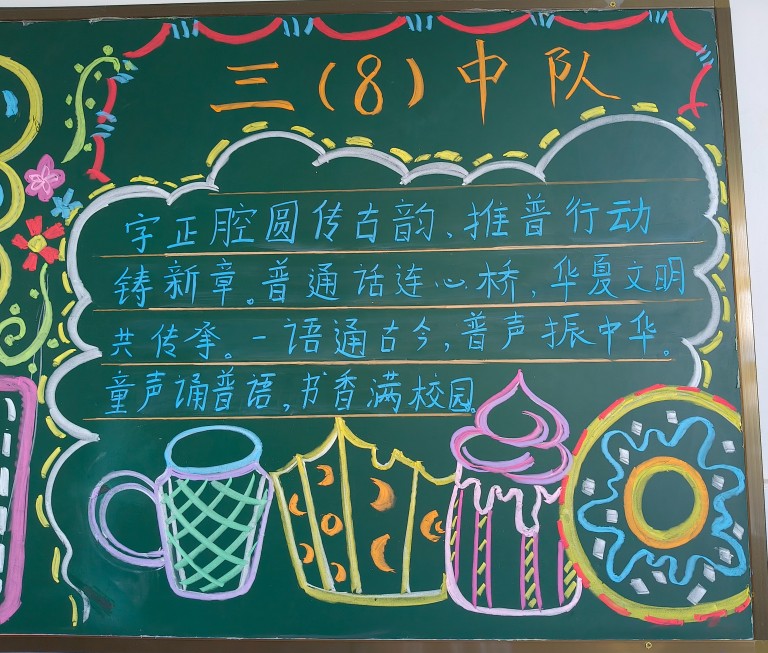 三（8）中队
字正腔圆传古韵、推普行动
铸新章。普通话连心桥，华夏文明
共传承。一语通古今，普声振中华。
童声诵普语，书香满校园。